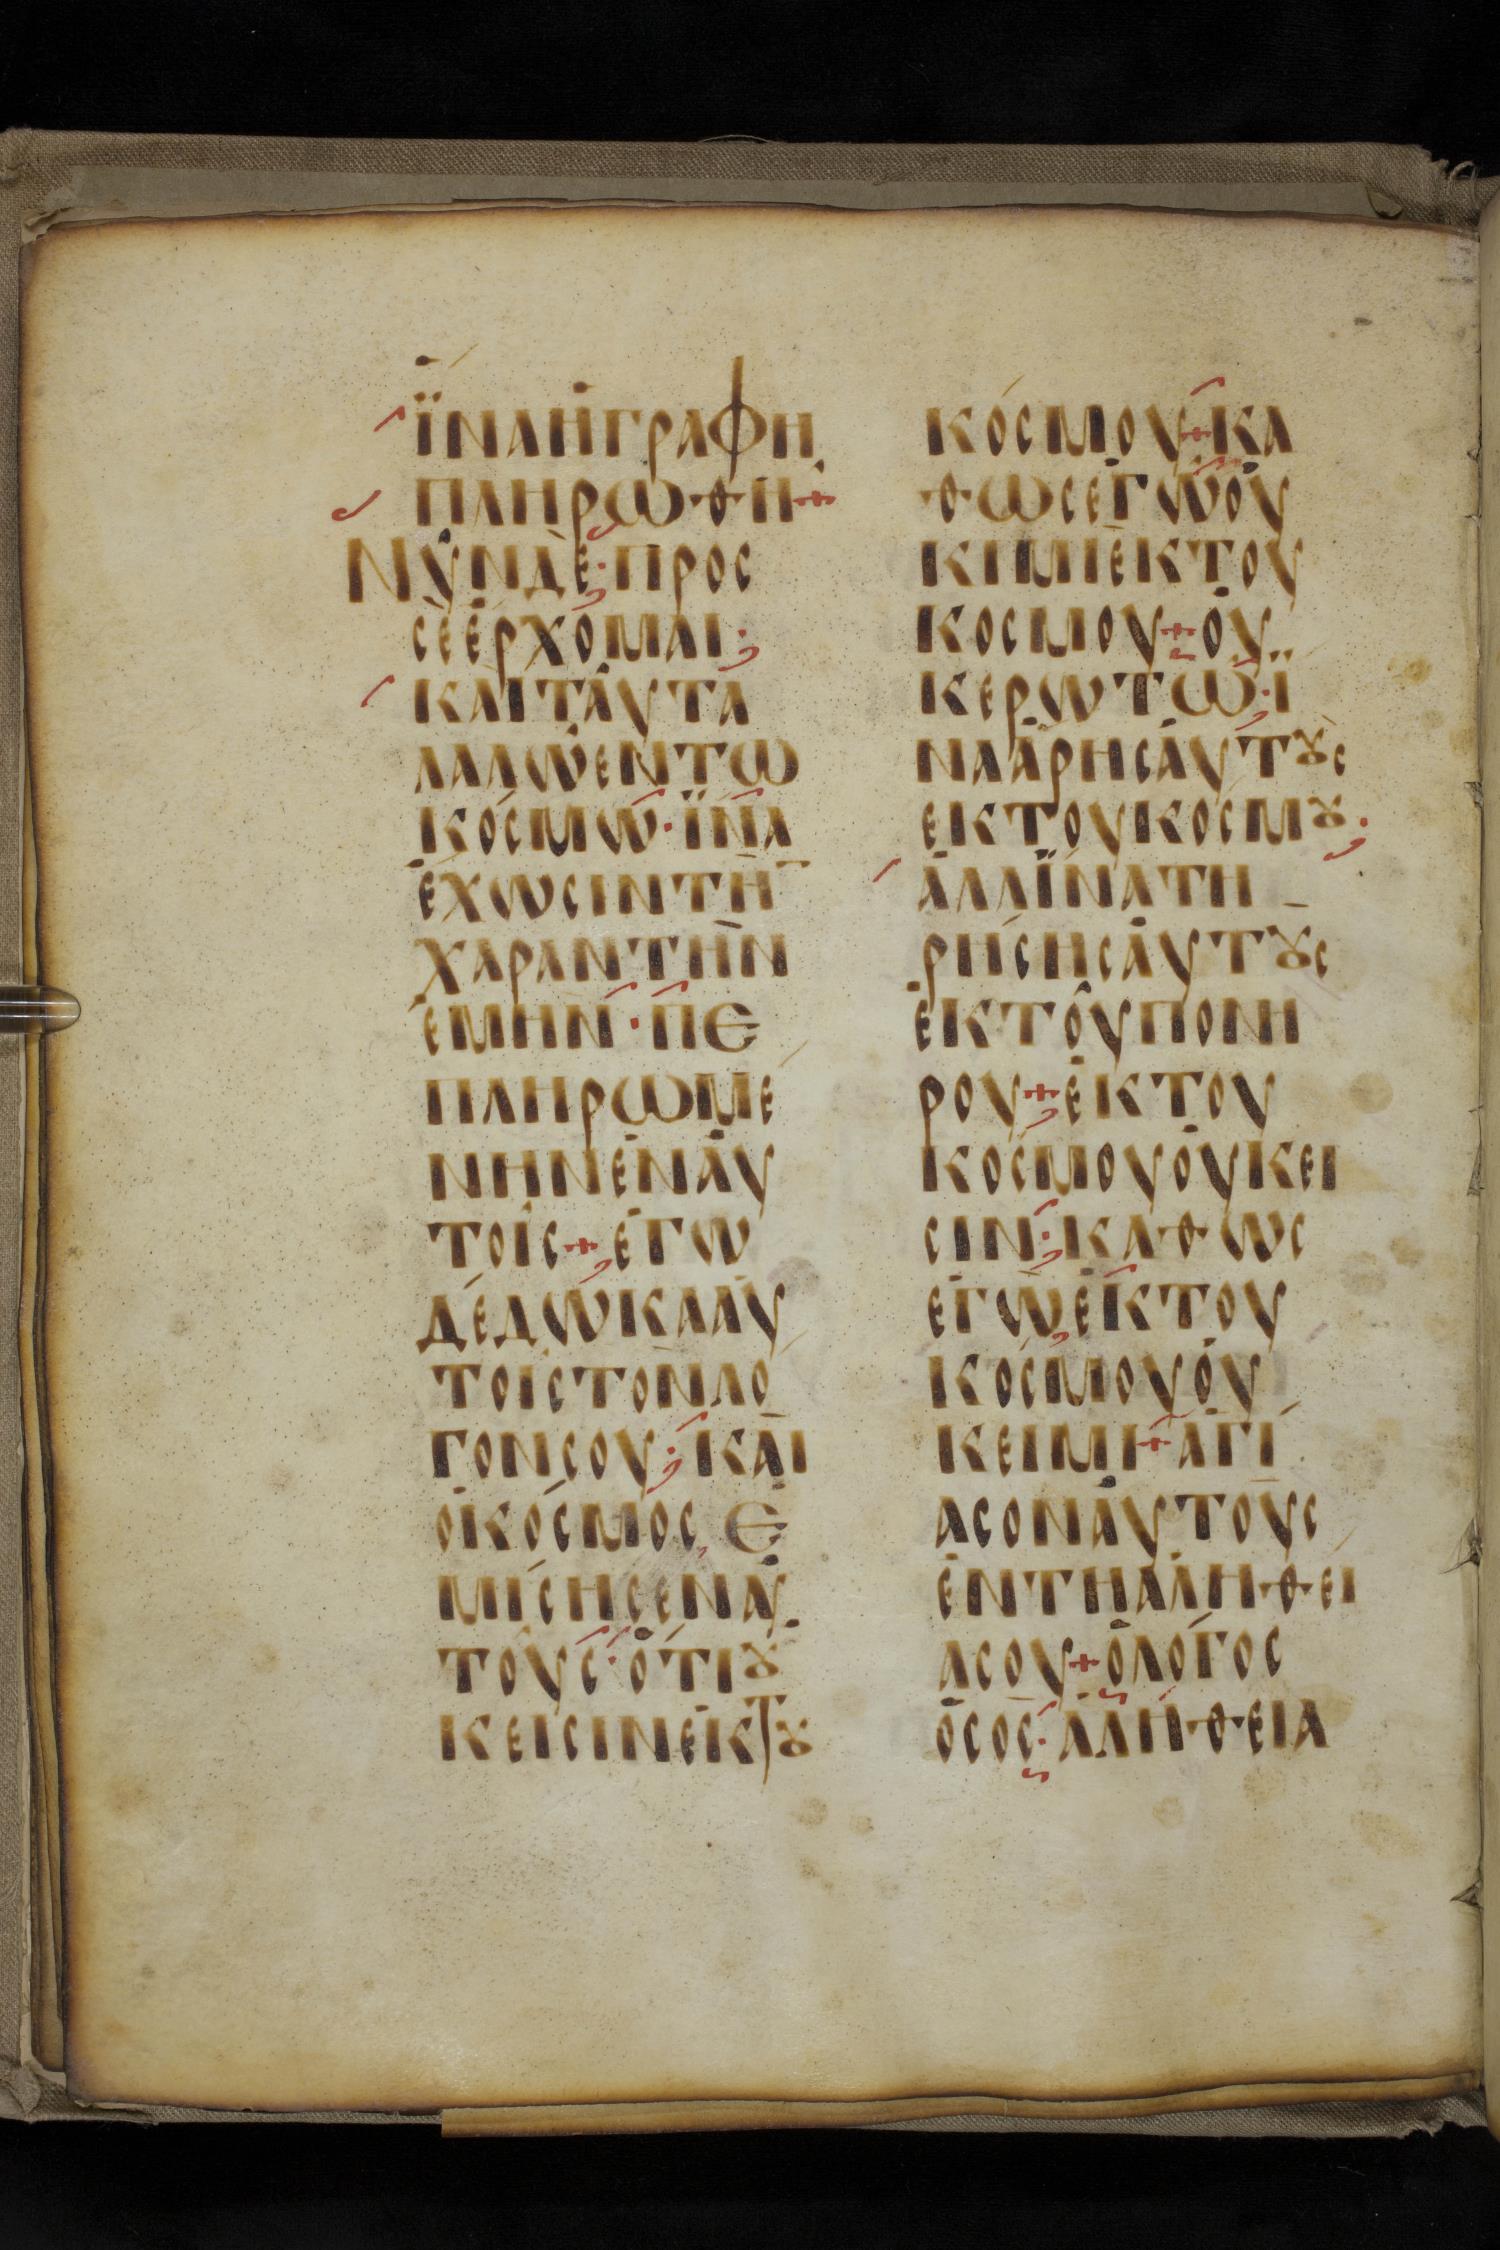 ΪΝΑΗΓΡΑΦΗ
ΠΛΗΡΩΘΗ+
ΝΥΝΔΕ·ΠΡΟΣ
ϹΕΕΡΧΟΜΑΙ·
ΚΑΙΤΑΥΤΑ
ΛΑΛΩΕΝΤΩ
ΚΟϹΜΩ·ΪΝΑ
ΕΧΩϹΙΝΤΗ̅
ΧΑΡΑΝΤΗΝ
ΕΜΗΝ·ΠΕ
ΠΛΗΡΩΜΕ
ΝΗΝΕΝΑΥ
ΤΟΙϹ+ΕΓΩ
ΔΕΔΩΚΑΑΥ
ΤΟΙϹΤΟΝΛΟ
ΓΟΝϹΟΥ·ΚΑΙ
ΟΚΟϹΜΟϹΕ
ΜΙϹΗϹΕΝΑΥ
ΤΟΥϹ·ΟΤΙȢ
ΚΕΙϹΙΝΕΚΤȢ
ΚΟϹΜΟΥ+ΚΑ
ΘΩϹΕΓΩΟΥ
ΚΙΜΙΕΚΤΟΥ
ΚΟϹΜΟΥ+ΟΥ
ΚΕΡΩΤΩ·Ϊ
ΝΑΑΡΗϹΑΥΤȢϹ
ΕΚΤΟΥΚΟϹΜȢ·
ΑΛΛΪΝΑΤΗ
ΡΗϹΗϹΑΥΤȢϹ
ΕΚΤΟΥΠΟΝΗ
ΡΟΥ+ΕΚΤΟΥ
ΚΟϹΜΟΥΟΥΚΕΙ
ϹΙΝ·ΚΑΘΩϹ
ΕΓΩΕΚΤΟΥ
ΚΟϹΜΟΥΟΥ
ΚΕΙΜΙ+ΑΓΙ
ΑϹΟΝΑΥΤΟΥϹ
ΕΝΤΗΑΛΗΘΕΙ
ΑϹΟΥ+ΟΛΟΓΟϹ
ΟϹΟϹ·ΑΛΗΘΕΙΑ